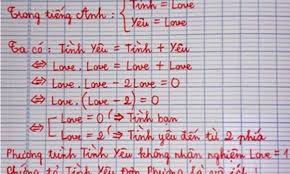 Trong tiếng Anh : { Tình = Love
Yêu = Love
Ta có : Tình Yêu = Tình + Yêu
⇔ Love . Love = Love + Love
⇔ Love . Love - 2 Love = 0
⇔ Love . (Love - 2) = 0
⇔ [ Love = 0 ⇒ Tình bạn
Love = 2 ⇒ Tình yêu đến từ 2 phía
Phương trình Tình Yêu không nhận nghiệm Love = 1
Chứng tỏ Tình Yêu Đơn Phương là